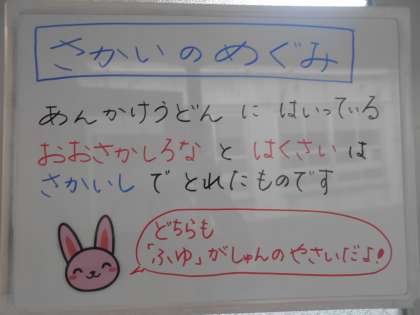 さかいのめぐみ
あんかけうどん に はいっている
おおさかしろな と はくさい は
さかいし で とれたものです
どちらも
「ふゆ」がしゅんのやさいだよ!